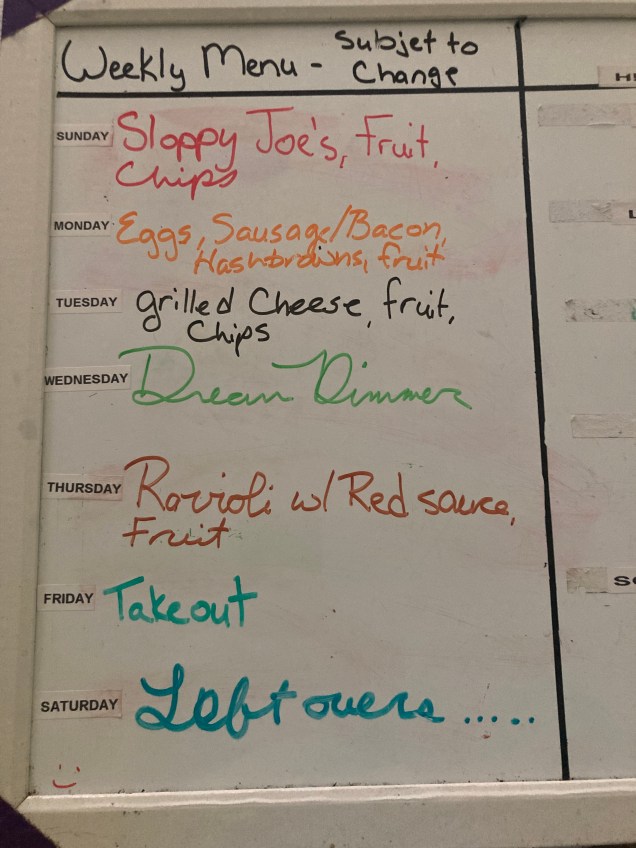 Weekly Menu - Subjet to
Change
SUNDAY Sloppy Joe's, Fruit,
Chips
MONDAY Eggs, Sausage/Bacon,
Hashbrowns, fruit
TUESDAY grilled Cheese, fruit,
Chips
WEDNESDAY Dream Dinner
THURSDAY Ravioli w/ Red sauce,
Fruit
FRIDAY Takeout
SATURDAY Leftovers .....